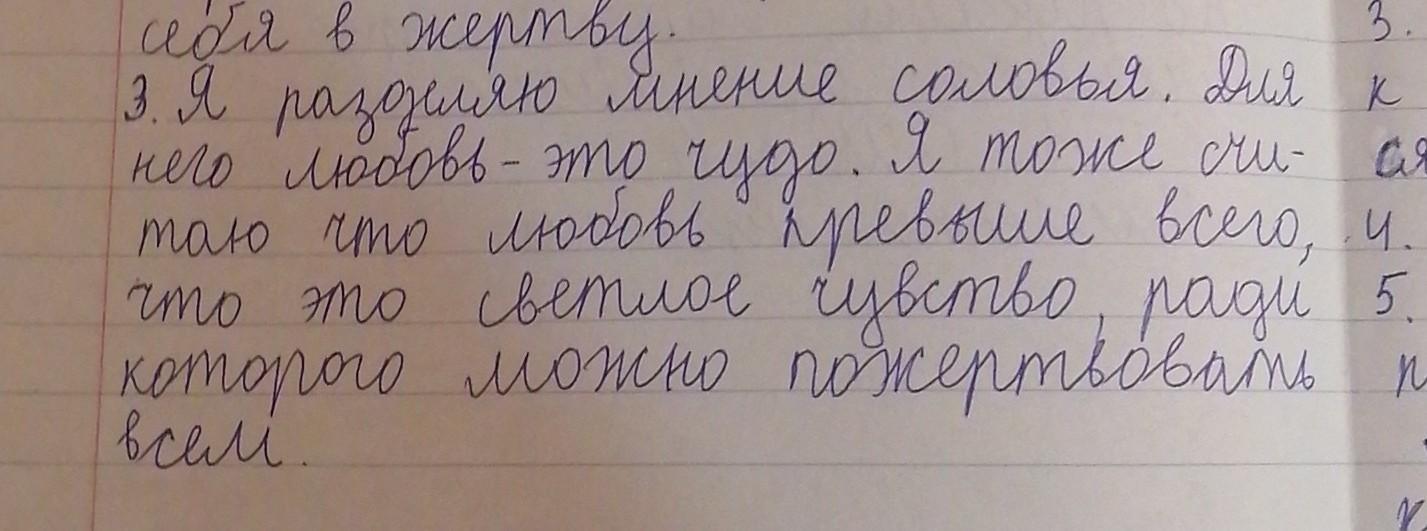 себя в жертву.
3. Я разделяю мнение соловья. Для
него любовь - это чудо. Я тоже счи-
таю что любовь превыше всего,
что это светлое чувство, ради
которого можно пожертвовать
всем.
3.
к
ся
4.
5.
п
к